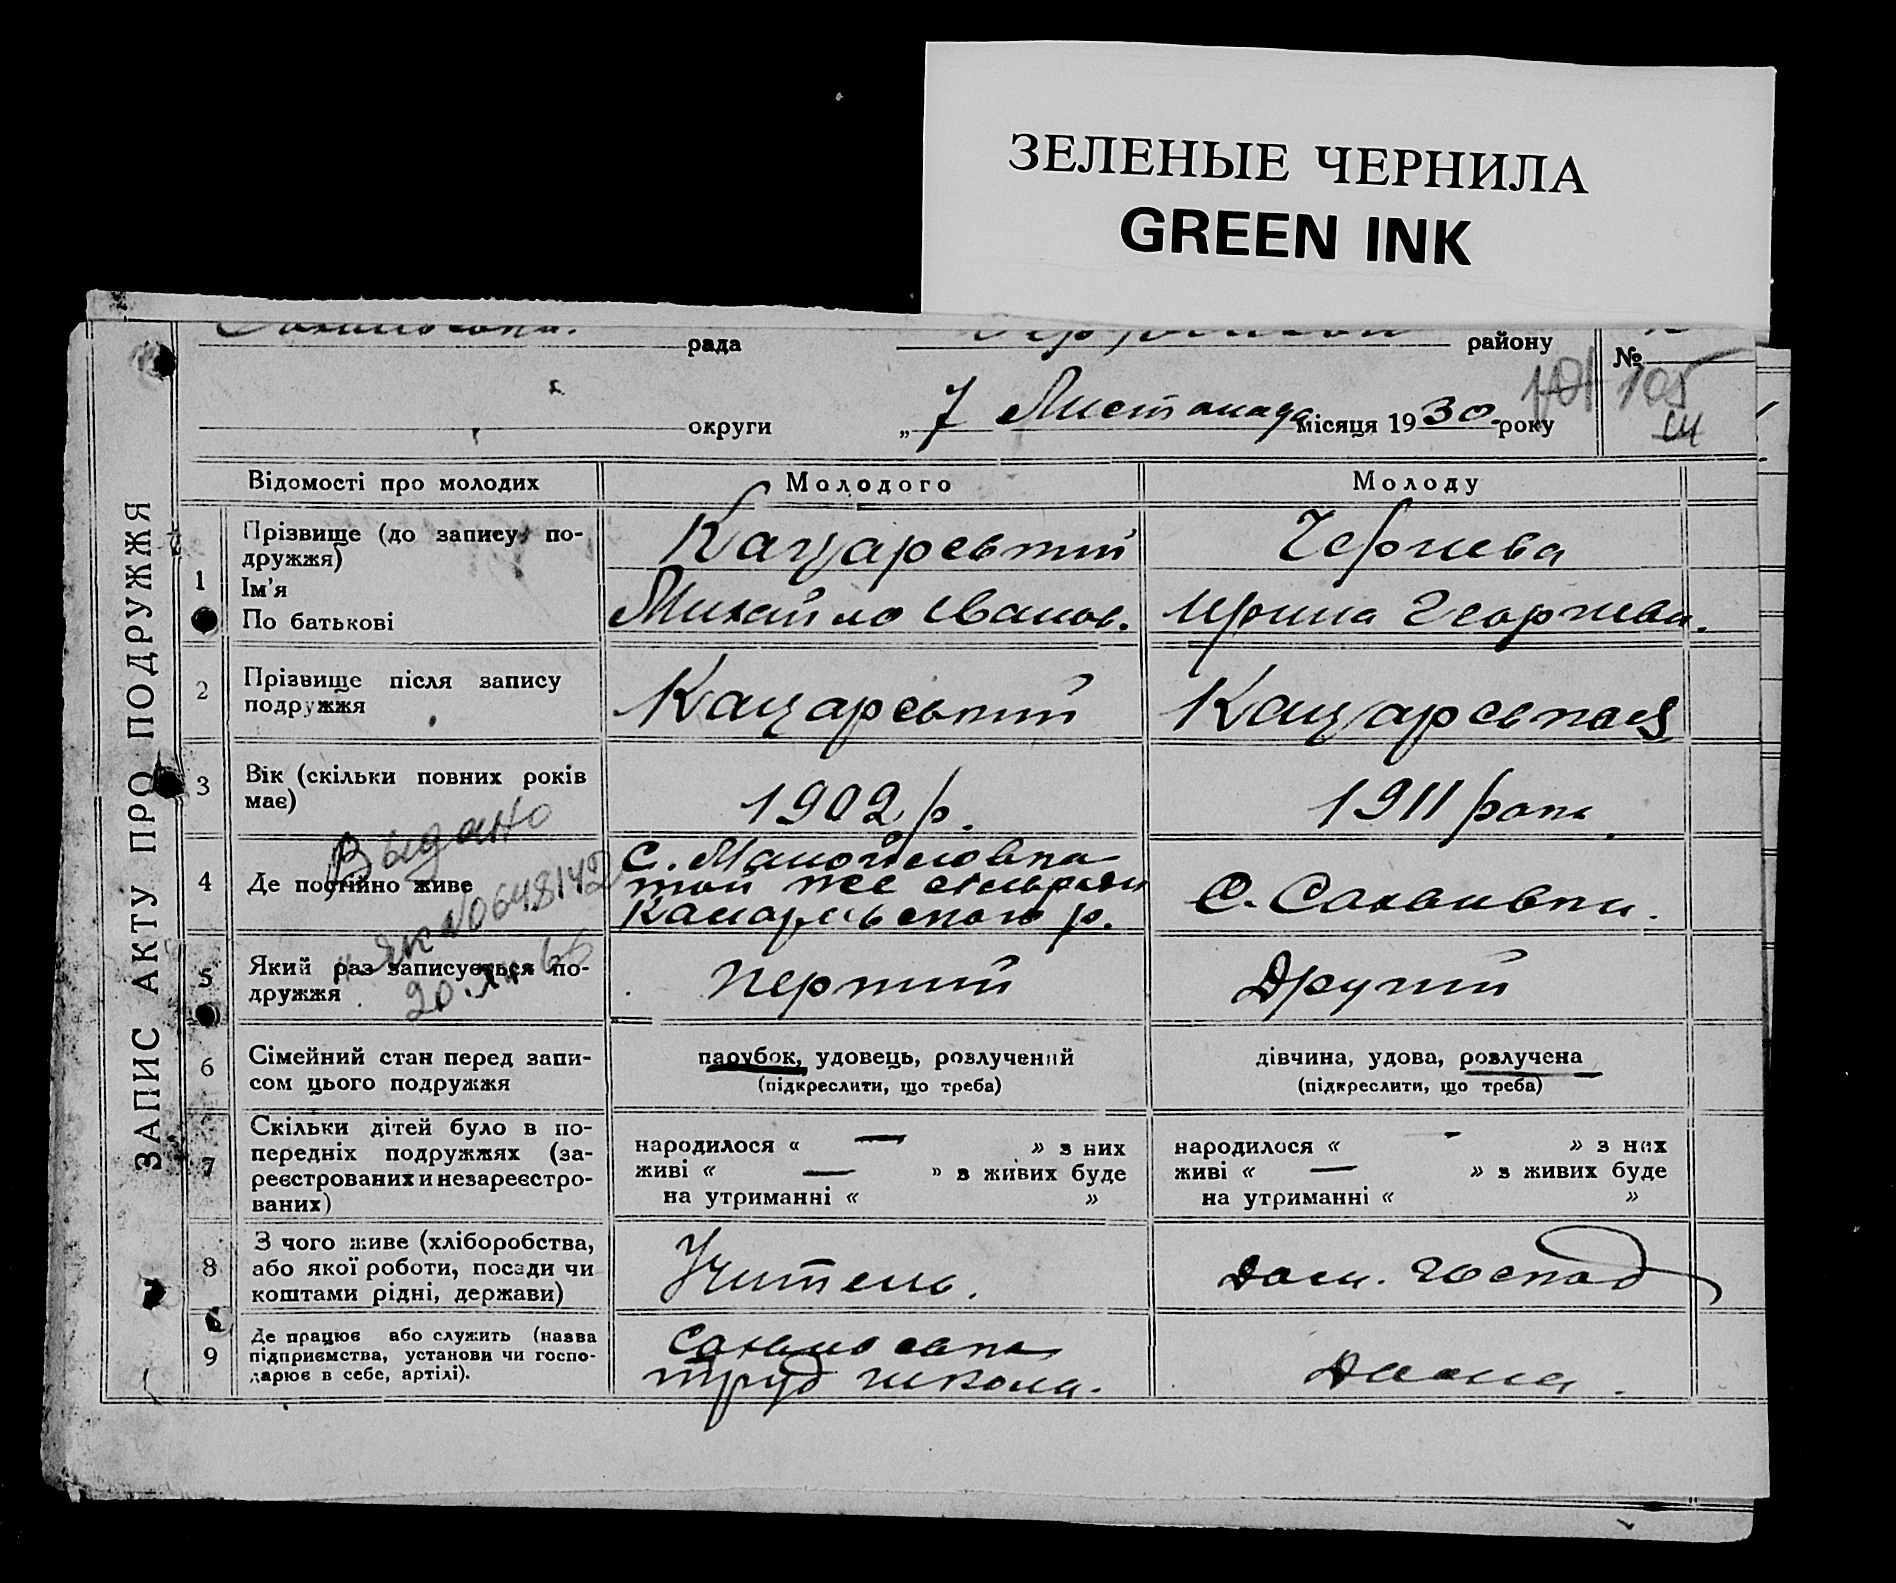 ЗЕЛЕНЫЕ ЧЕРНИЛА
GREEN INK
рада району №
105
округи „7 Листопада місяця 1930 року
ЗАПИС АКТУ ПРО ПОДРУЖЖЯ
Відомості про молодих Молодого Молоду
1 Прізвище (до запису по-
дружжя)
Кацарський Чернева
Ім'я
По батькові
Михайло Іванов. Ирина Георгієвн.
2 Прізвище після запису
подружжя
Кацарський Кацарська
3 Вік (скільки повних років
має)
1902 р. 1911 року
Выдано
4 Де постійно живе
с. Манойлівка
той же сільради
р.
с.
№ 0648142
5 Який раз записується по-
дружжя
Перший Другий
20
6 Сімейний стан перед запи-
сом цього подружжя
парубок, удовець, розлучений
(підкреслити, що треба)
дівчина, удова, розлучена
(підкреслити, що треба)
7 Скільки дітей було в по-
передніх подружжях (за-
реєстрованих и незареєстро-
ваних)
народилося « — » з них
живі « — » з живих буде
на утриманні « »
народилося « — » з них
живі « — » з живих буде
на утриманні « »
8 З чого живе (хліборобства,
або якої роботи, посади чи
коштами рідні, держави)
Учитель. Дом. господ
9 Де працює або служить (назва
підприємства, установи чи госпо-
дарює в себе, артілі).
труд школа.
Дома.